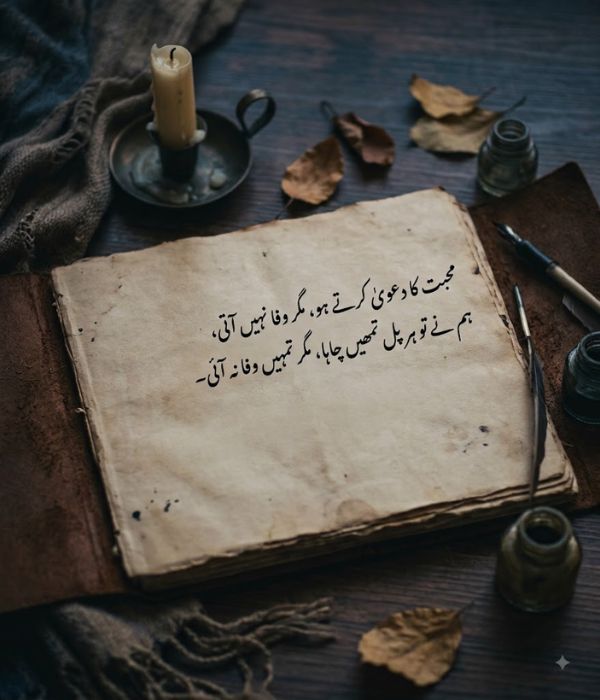 محبت کا دعویٰ کرتے ہو، مگر وفا نہیں آتی،
ہم نے تو ہر پل تمھیں چاہا، مگر تمہیں وفا نہ آئی۔